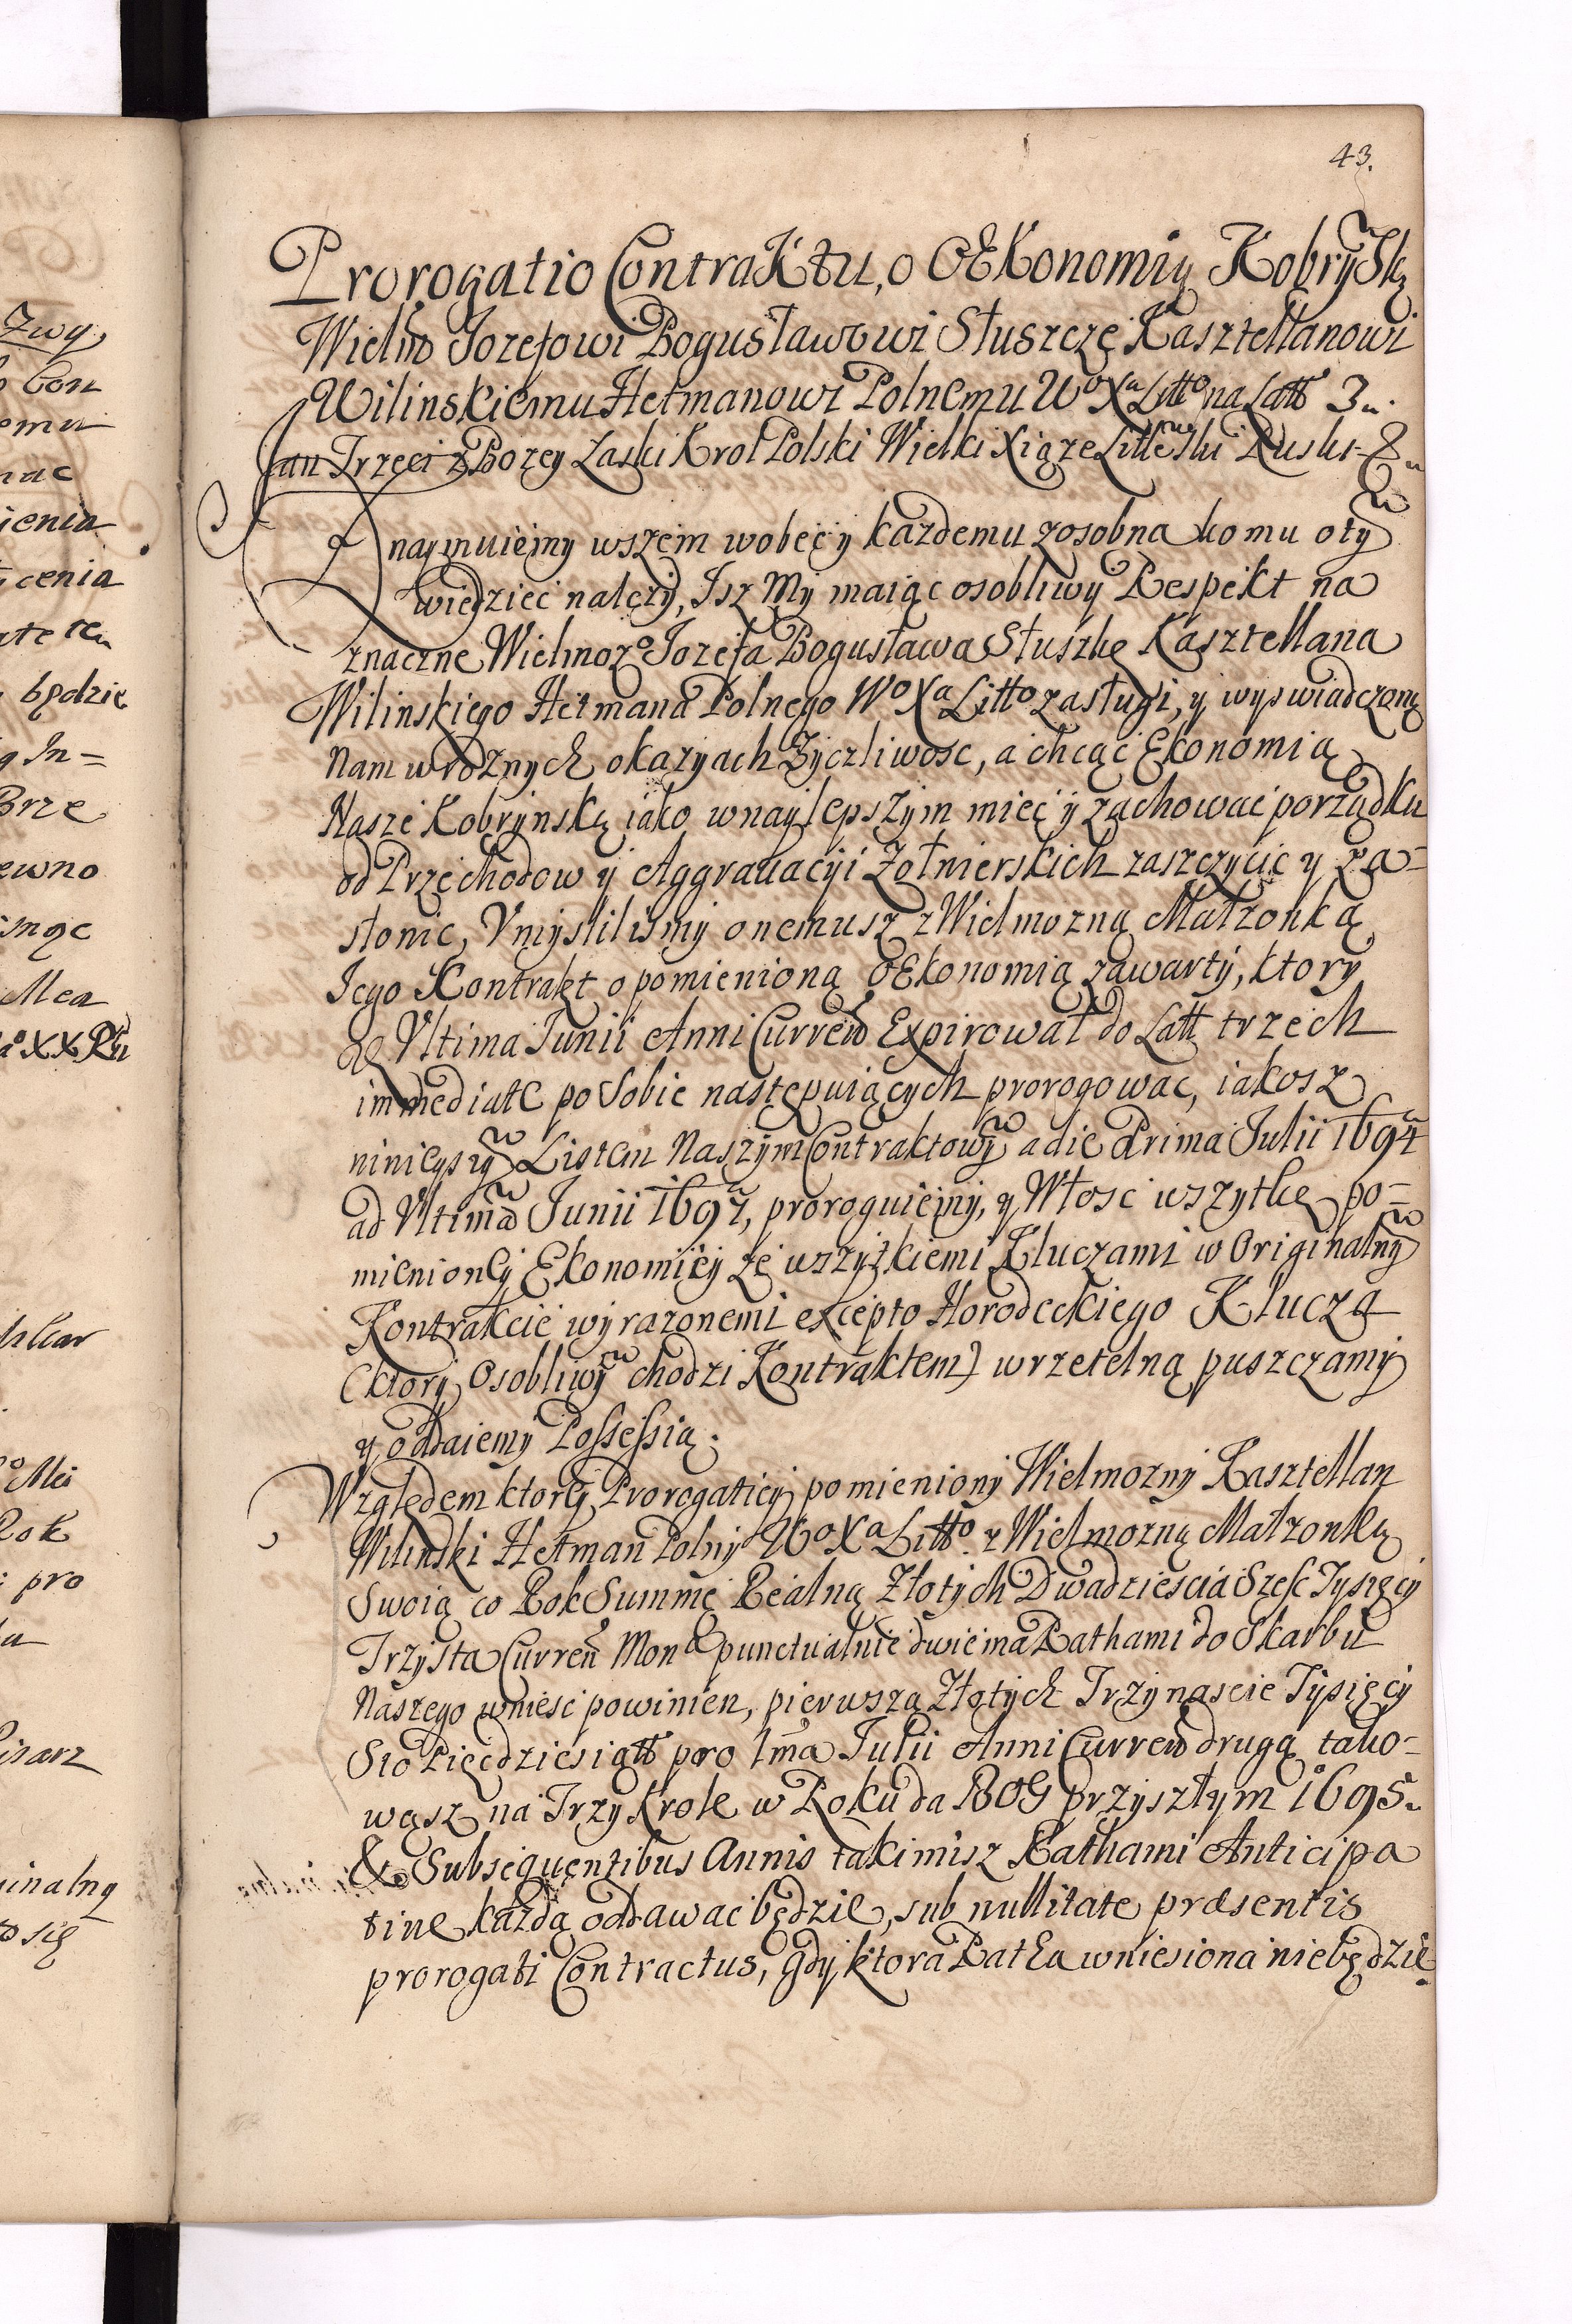 43.
Prorogatio Contraktu, o OEkonomią Kobryską
Wielmo Jozefowi Bogusławowi Słuszczę Kasztellanowi
Wilinskiemu Hetmanowi Polnemu Wo Xa Litto na Latt 3.
Jan Trzeci z Bozey Łaski Krol Polski Wielki Xiąze Litteski Ruski &
Oznaymuiemy wszem wobec y kazdemu zosobna komu o tym
wiedziec nalezy, Isz My maiąc osobliwy Respekt na
znaczne Wielmozo Jozefa Bogusława Słuszke Kasztellana
Wilinskiego Hetmana Polnego Wo Xa Litto zasługi, y wyswiadczoną
Nam w roznych okazyach Zyczliwosc, a chcąc Ekonomią
Nasze Kobrynską iako w naylepszym miec y zachowac porządku
od Przechodow y Aggrauacyi Zołnierskich zaszczycic y za=
słonic, Vmyslilismy onemusz z Wielmozną Małzonką
Jego Kontrakt o pomienioną OEkonomią zawarty, ktory
de Vltima Junii Anni Curren Expirował do Latt trzech
immediate po sobie następuiących prorogowac, iakosz
ninieyszym Listem Naszym Contraktowym a die Prima Julii 1694
ad Vltimam Junii 1697, proroguiemy, y Włosc wszytkę po=
mienioney Ekonomiiey ze wszytkiemi Kluczami w Originalnym
Kontrakcie wyrazonemi excepto Horodeckiego Klucza
(ktory Osobliwym chodzi Kontraktem) w rzetelną puszczamy
y oddaiemy Possessią.
Względem ktorey Prorogatiey pomieniony Wielmozny Kasztellan
Wilinski Hetman Polny Wo Xa Litto. z Wielmozną Małzonką
Swoią co Rok Summę Realną Złotych Dwadziescia Szesc Tysięcy
Trzysta Curren Mona punctualnie dwiema Rathami do Skarbu
Naszego wniesc powinien, pierwszą Złotych Trzynascie Tysięcy
Sto Pięcdziesiątt pro 1ma Julii Anni Curren drugą tako=
wąsz na Trzy Krole w Roku da BOG przyszłym 1695.
& Subsequentibus Annis takimisz Rathami Anticipa
tine kazdą oddawac będzie, sub nullitate præsentis
prorogati Contractus, gdy ktora Ratha wniesiona niebędzie